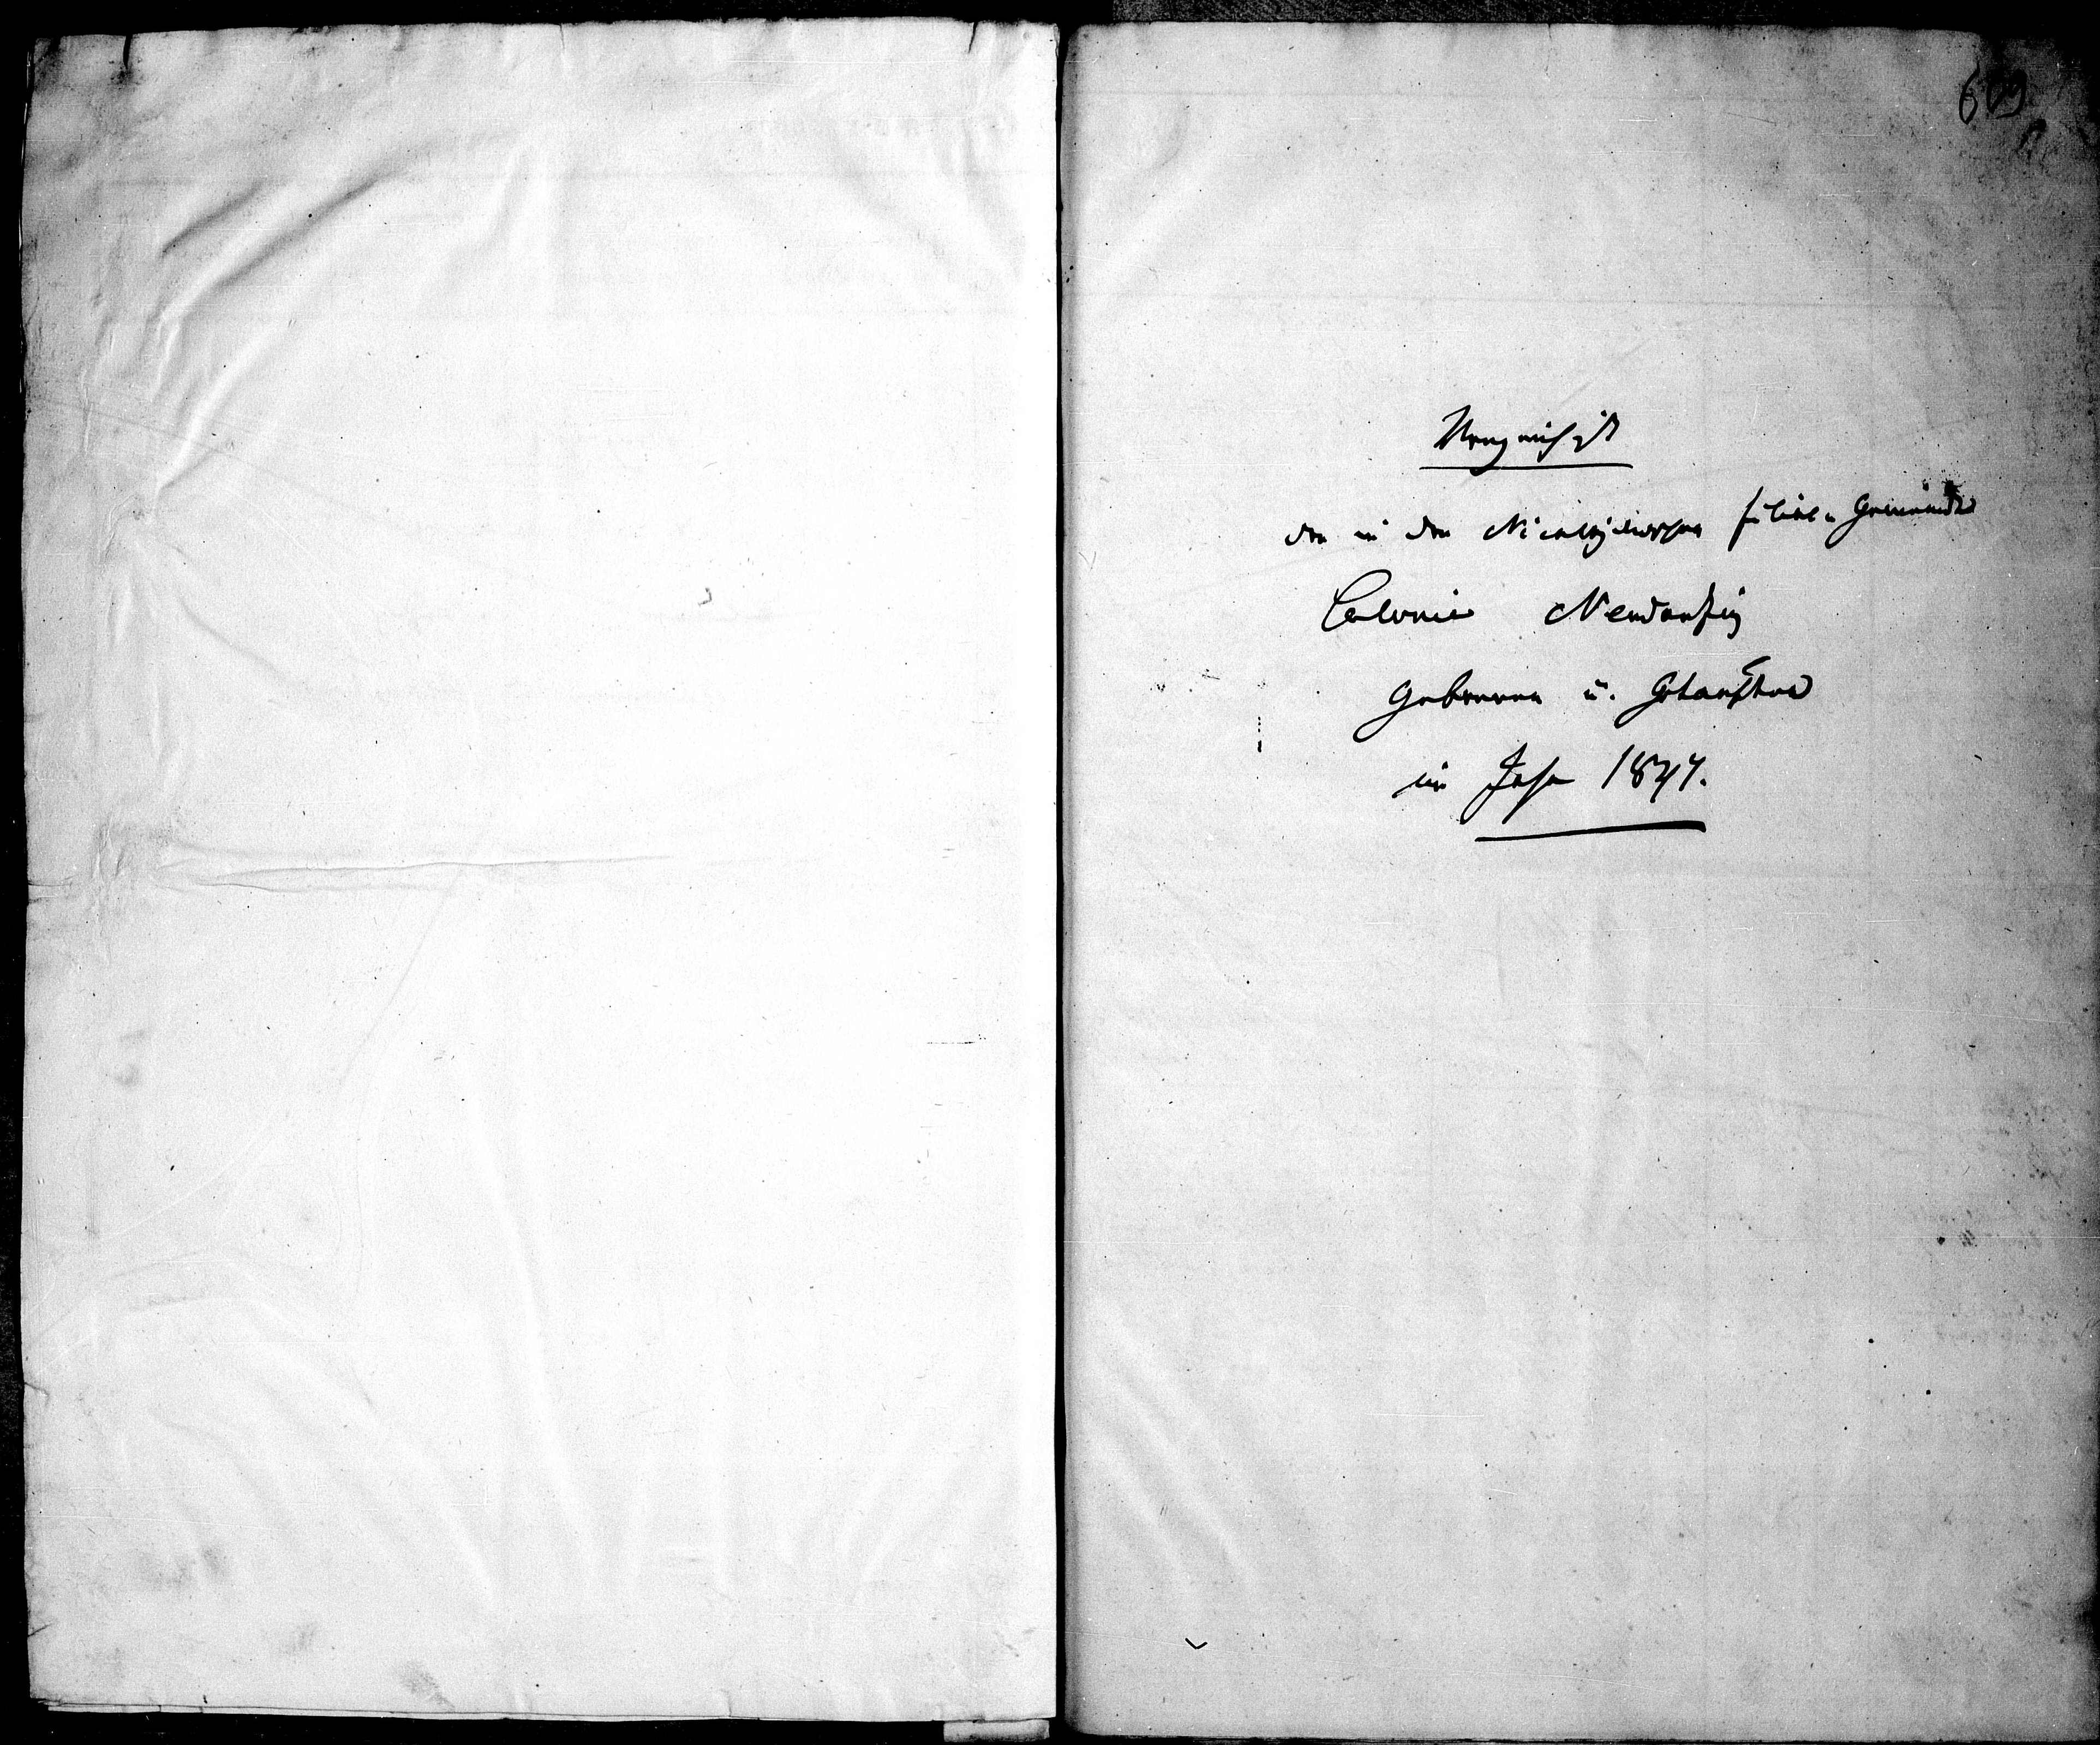 Verzeichniß
der in der Nicolajewschen Filial-Gemeinde
Colonie Neudanzig
Gebornen u. Getauften
im Jahr 1847.